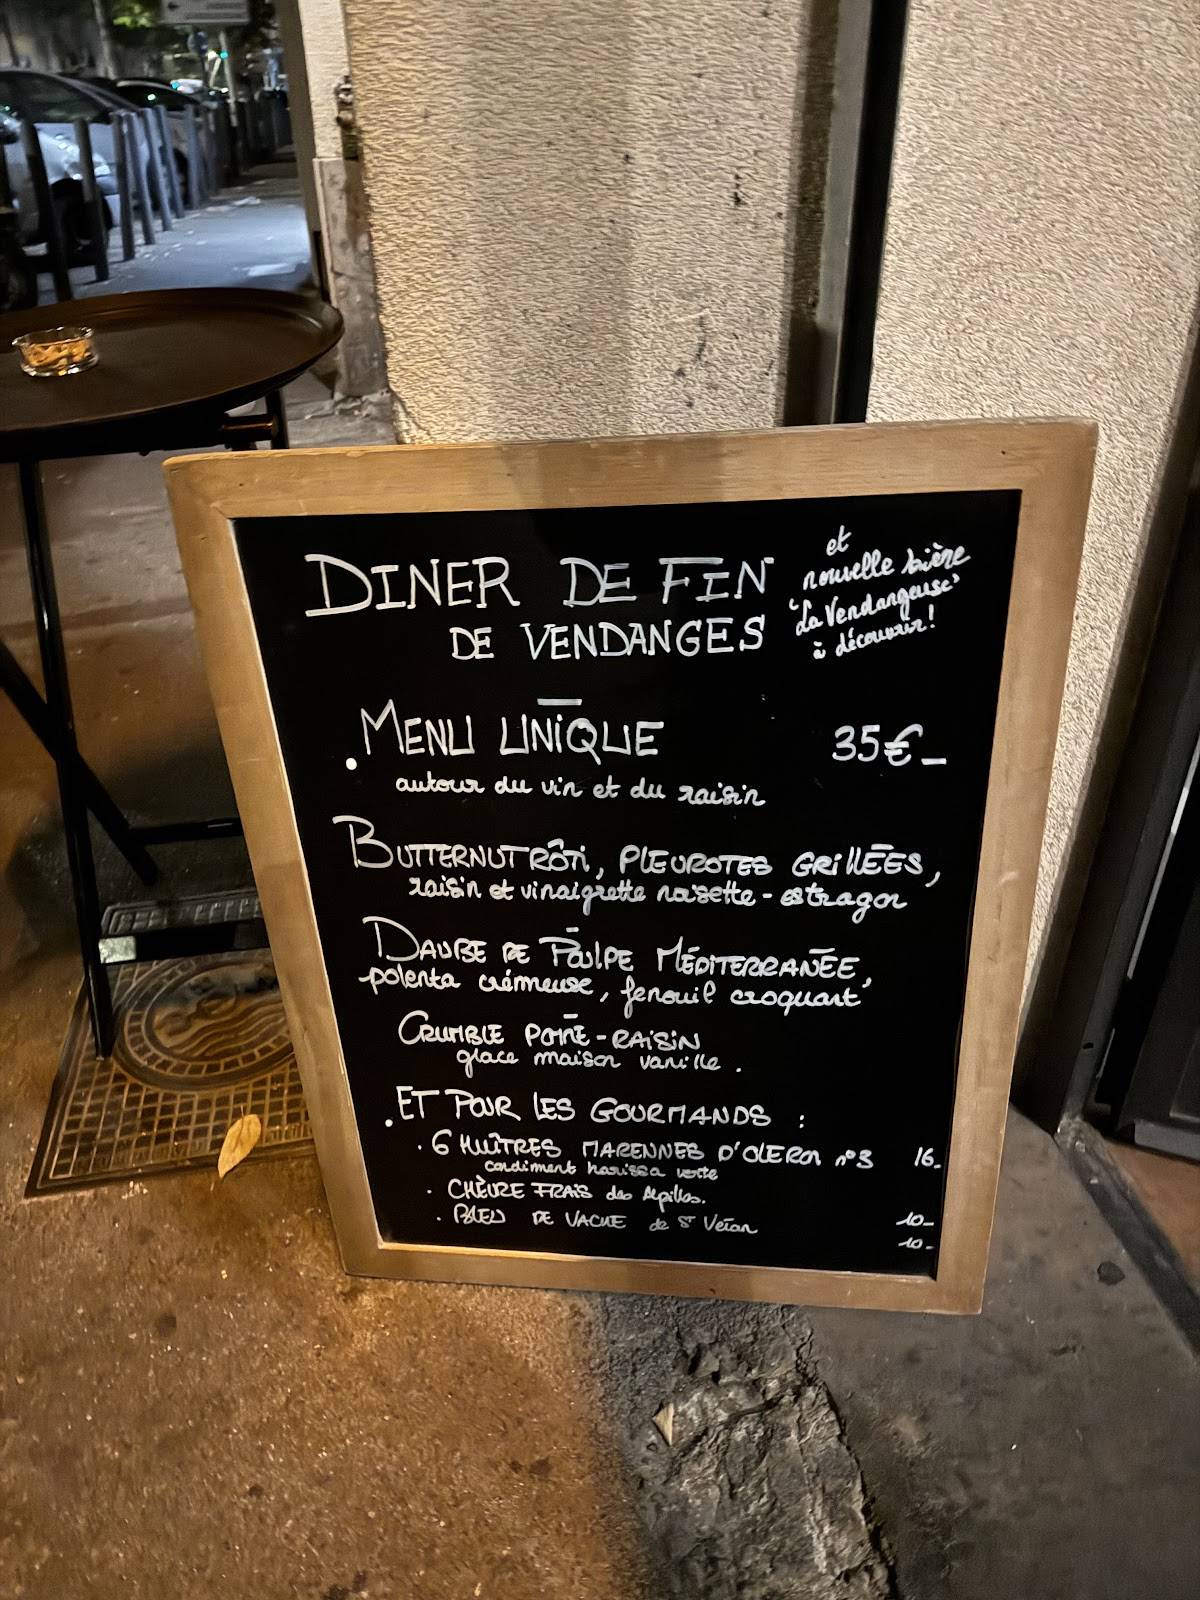 DINER DE FIN
DE VENDANGES
et
nouvelle bière
'La Vendangeuse'
à découvrir!
. MENU UNIQUE 35€_
autour du vin et du raisin
BUTTERNUT RÔTI, PLEUROTES GRILLÉES,
raisin et vinaigrette noisette - estragon
DAUBE DE POULPE MÉDITERRANÉE,
polenta crémeuse, fenouil croquant
CRUMBLE POIRE-RAISIN
glace maison vanille.
. ET POUR LES GOURMANDS :
. 6 HUÎTRES MARENNES D'OLERON n°3 16_
condiment harissa verte
. CHÈVRE FRAIS des Alpilles. 10_
. BLEU DE VACHE de St Véran 10_